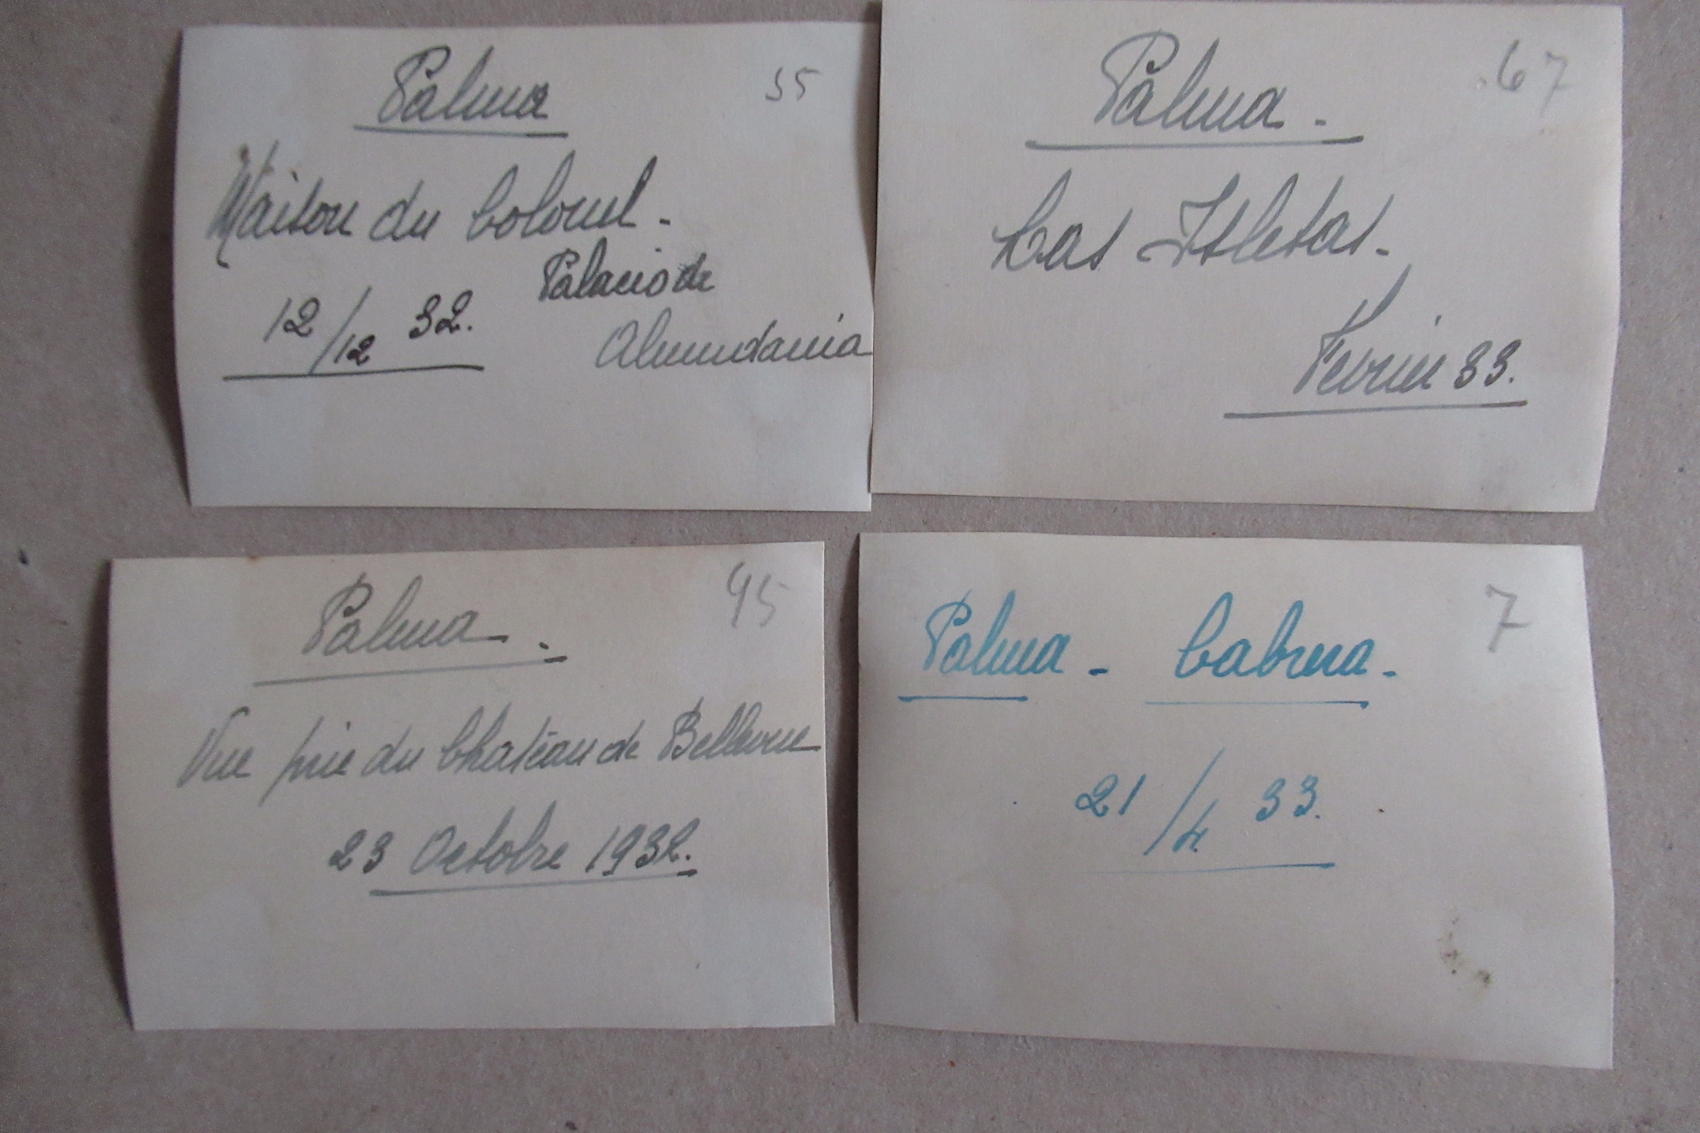 Palma
35
Maison du Colonel -
Palacio de
12/12 32.
Almudania
Palma -
67
Las Isletas -
Fevrier 33.
Palma -
45
Vue prise du Chateau de Bellevue
23 Octobre 1932.
Palma - Cabrera -
7
21/4 33.